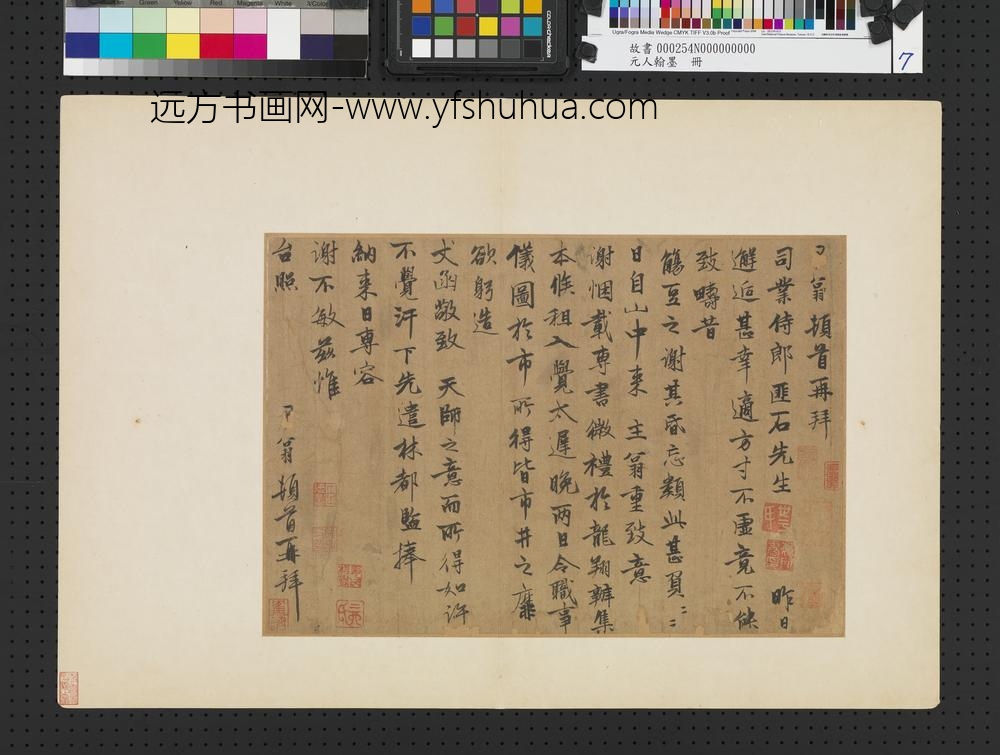 Green
Yellow
Red
Magenta
White
3/Color
colorchecker
Ugra/Fogra Media Wedge CMYK TIFF V3.0b Proof
故書 000254N000000000
元人翰墨 冊
7
远方书画网-www.yfshuhua.com
翁頓首再拜
司業侍郎匪石先生 昨日
邂逅甚幸適方寸不虛竟不能
致疇昔
觴豆之謝其昏忘類此甚負〻
日自山中來 主翁重致意
謝悃載專書微禮於龍翔辦集
本候租入覺太遲晚兩日令職事
儀圖於市所得皆市井之靡
欲躬造
丈函敬致 天師之意而所得如許
不覺汗下先遣林都監捧
納來日專容
謝不敏茲惟
台照
翁頓首再拜